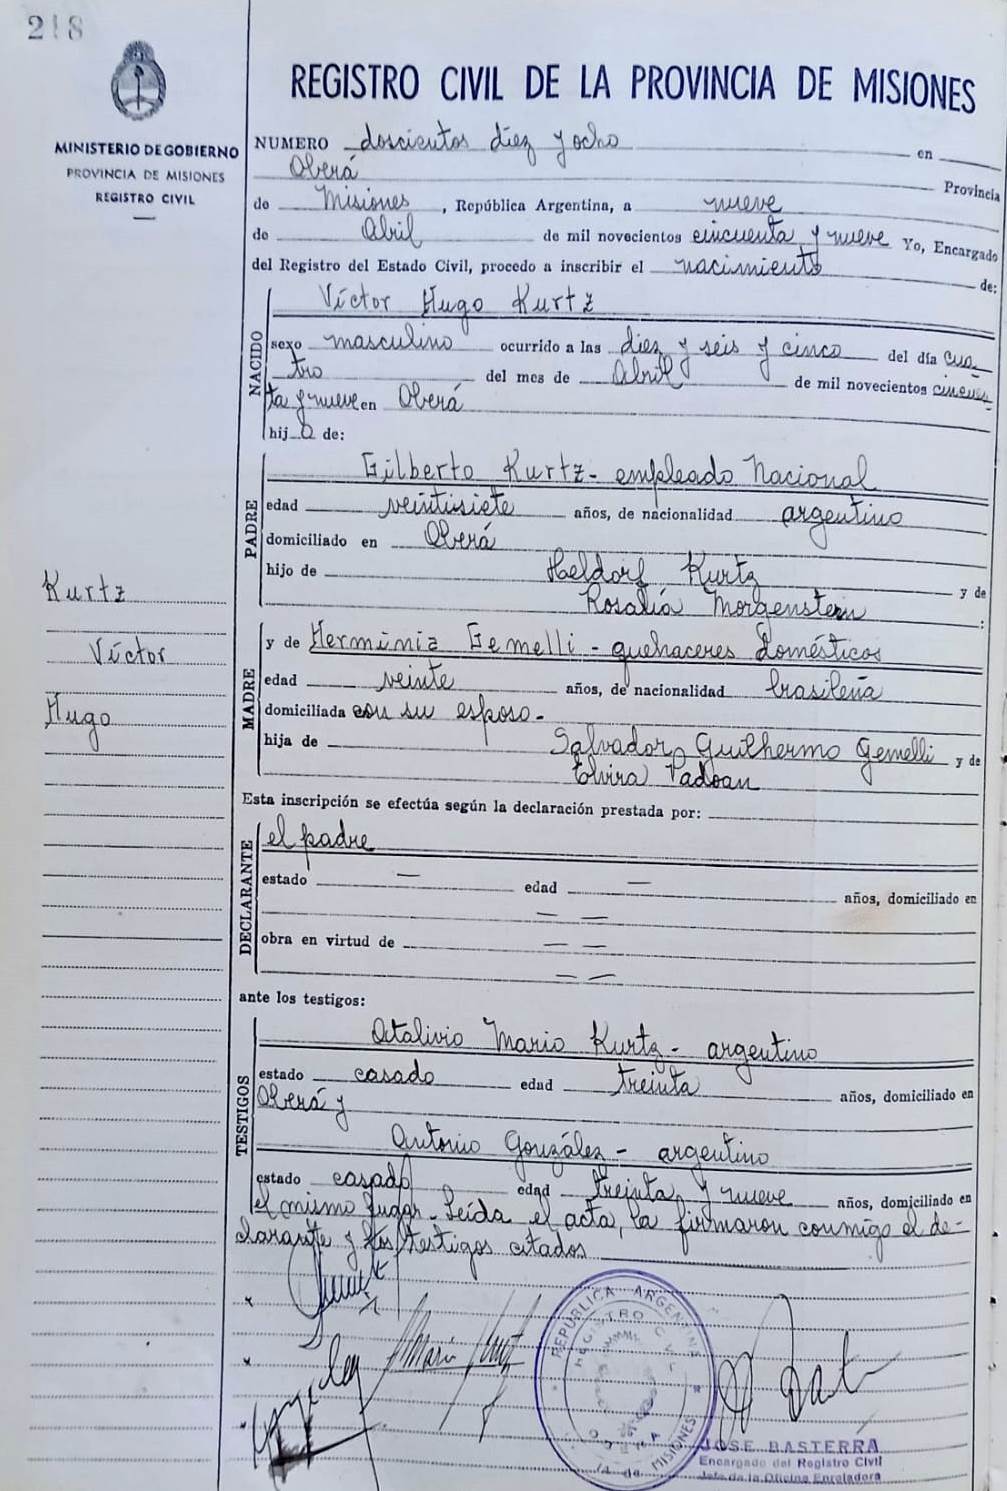 218
MINISTERIO DE GOBIERNO
PROVINCIA DE MISIONES
REGISTRO CIVIL
REGISTRO CIVIL DE LA PROVINCIA DE MISIONES
NUMERO doscientos diez y ocho en
Oberá Provincia
de Misiones, República Argentina, a nueve
de Abril de mil novecientos cincuenta y nueve Yo, Encargado
del Registro del Estado Civil, procedo a inscribir el nacimiento de:
NACIDO
Víctor Hugo Kurtz
sexo masculino ocurrido a las diez y seis y cinco del día cua-
tro del mes de Abril de mil novecientos cincuen
ta y nueve en Oberá
hij o de:
PADRE
Gilberto Kurtz - empleado Nacional
edad veintisiete años, de nacionalidad argentino
domiciliado en Oberá
hijo de Heldorf Kurtz y de
Rosalía Morgenstern :
Kurtz
Víctor
Hugo
MADRE
y de Herminia Gemelli - quehaceres domésticos
edad veinte años, de nacionalidad brasileña
domiciliada con su esposo.-
hija de Salvador Guilhermo Gemelli y de
Elvira Padoan
Esta inscripción se efectúa según la declaración prestada por:
DECLARANTE
el padre
estado — edad — años, domiciliado en
— —
obra en virtud de — —
— —
ante los testigos:
TESTIGOS
Otalivio Mario Kurtz - argentino
estado casado edad treinta años, domiciliado en
Oberá y
Antonio González - argentino
estado casado edad treinta y nueve años, domiciliado en
el mismo lugar - Leída el acta, la firmaron conmigo el de-
clarante y los testigos citados
Mario Kurtz
REPUBLICA ARGENTINA
REGISTRO CIVIL
MISIONES
JOSE BASTERRA
Encargado del Registro Civil
Jefe de la Oficina Enroladora